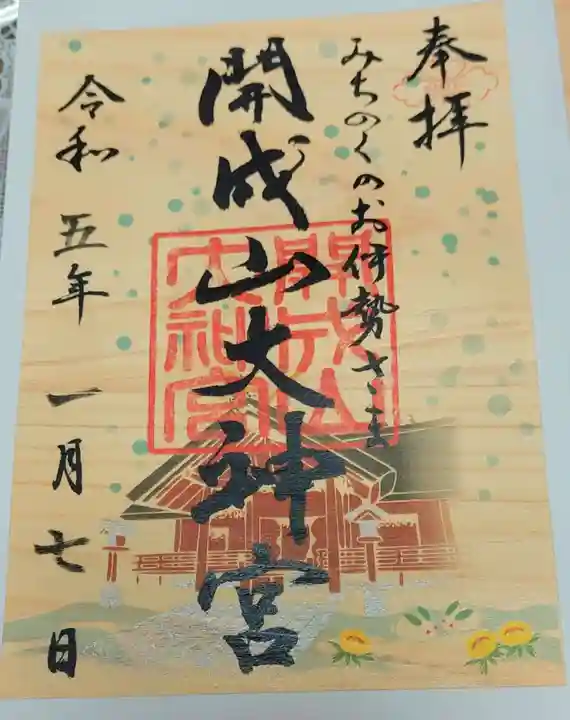 奉拝
みちのくのお伊勢さま
開成山大神宮
開成山
大神宮
令和五年一月七日